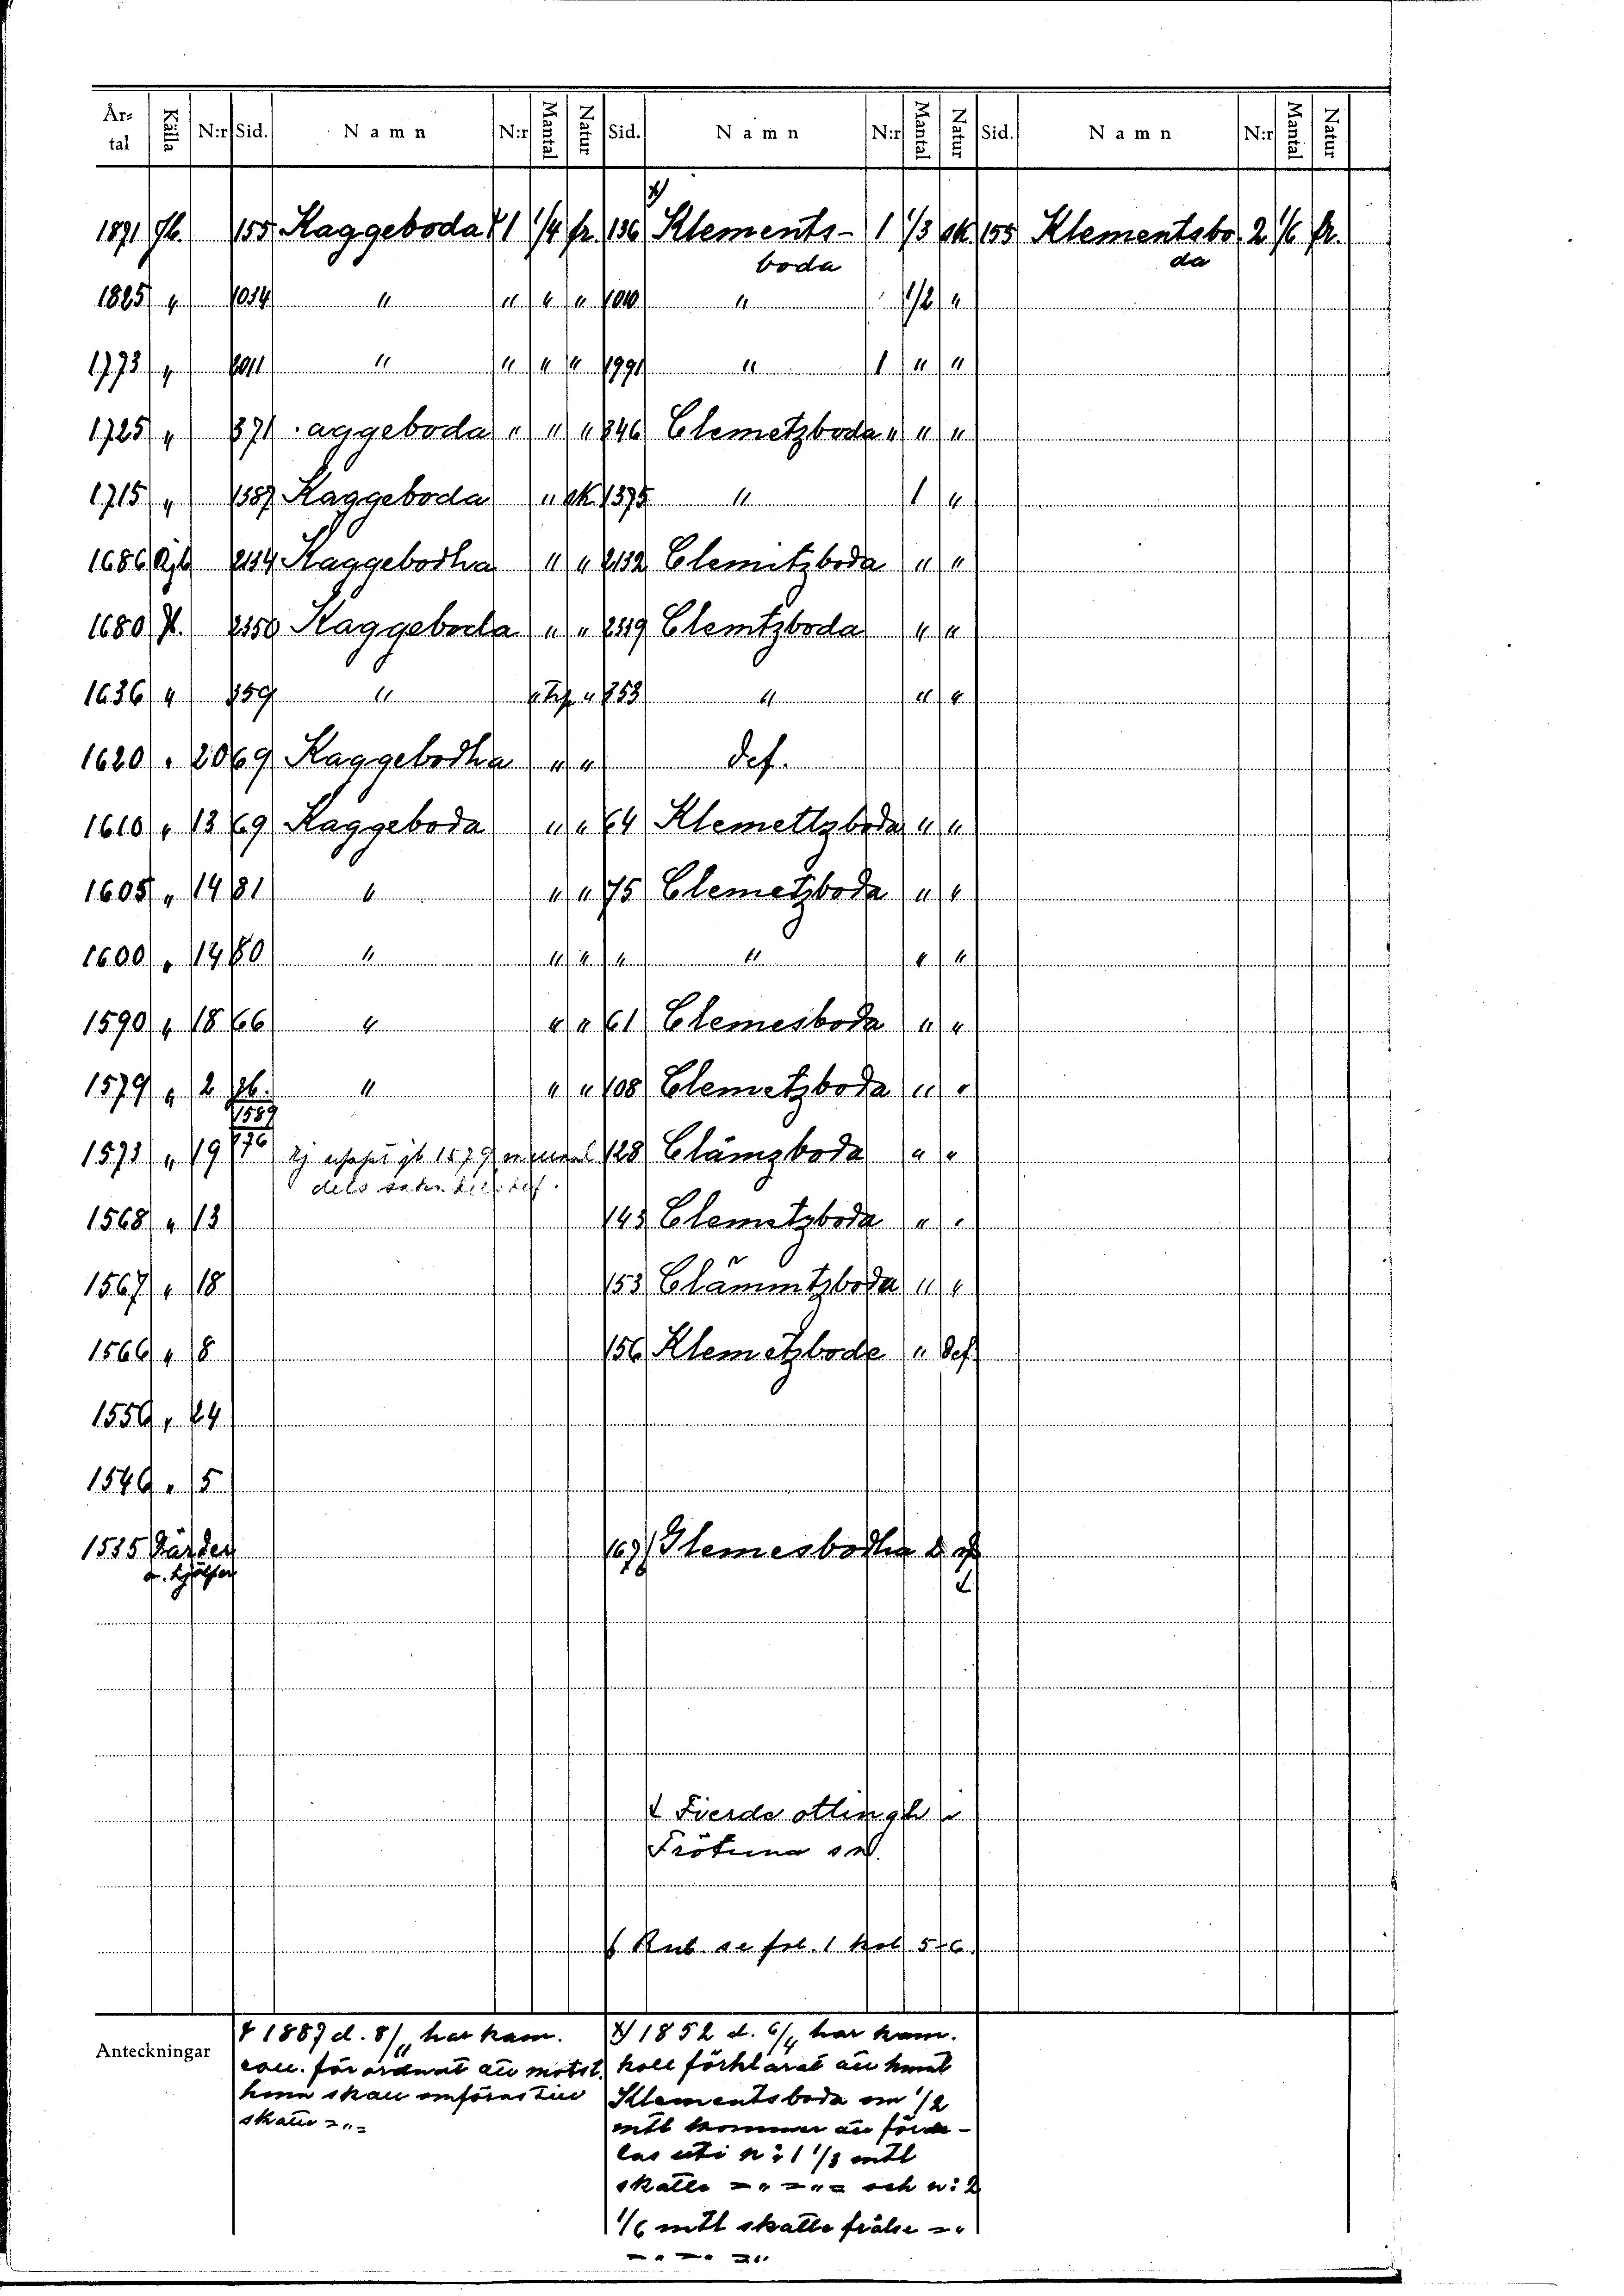 År-tal Källa N:r Sid. Namn N:r Mantal Natur Sid. Namn N:r Mantal Natur Sid. Namn N:r Mantal Natur
1891 Jb. 155 Kaggeboda 1 1/4 fr. 136 Klements- 1 1/3 sk. 155 Klementsbo 2 1/6 fr.
boda da
1825 " 1034 " " " " 1010 " 1/2 "
1773 " 2011 " " " " 1991 " 1 " "
1725 " 371 .aggeboda " " " 346 Clemetzboda " " "
1715 " 1387 Kaggeboda " sk. 1375 " 1 "
1686 2134 Kaggebodha " " 2132 Clemitzboda " "
1680 2350 Kaggeboda " " 2339 Clemtzboda " "
1636 " 359 " " 353 " " "
1620 " 20 69 Kaggebodha " " def.
1610 " 13 69 Kaggeboda " " 64 Klemettzboda " "
1605 " 14 81 " " " 75 Clemetzboda " "
1600 " 14 80 " " " " " " "
1590 " 18 66 " " " 61 Clemesboda " "
1579 " 2 Jb. " " " 108 Clemetzboda " "
1589
1573 " 19 176 jb 1579 128 Clämzboda " "
dels def.
1568 " 13 143 Clemetzboda " "
1567 " 18 153 Clämmtzboda " "
1566 " 8 156 Klemetzbode " def.
1556 " 24
1546 " 5
1535 Gärder 167 Glemesbodha
o. hjälper
Fierde ottingh i
Frötuna sn.
Rub. se fol. 1 kol 5-6.
Anteckningar
1887 d. 8/11 har kam.
coll. förordnat att motst.
hmn skall omföras till
skatte
1852 d. 6/4 har kam.
koll förklarat att hmnt
Klementsboda om 1/2
mtl kommer att förde-
las uti n:1 1/3 mtl
skatte och n:2
1/6 mtl skatte frälse